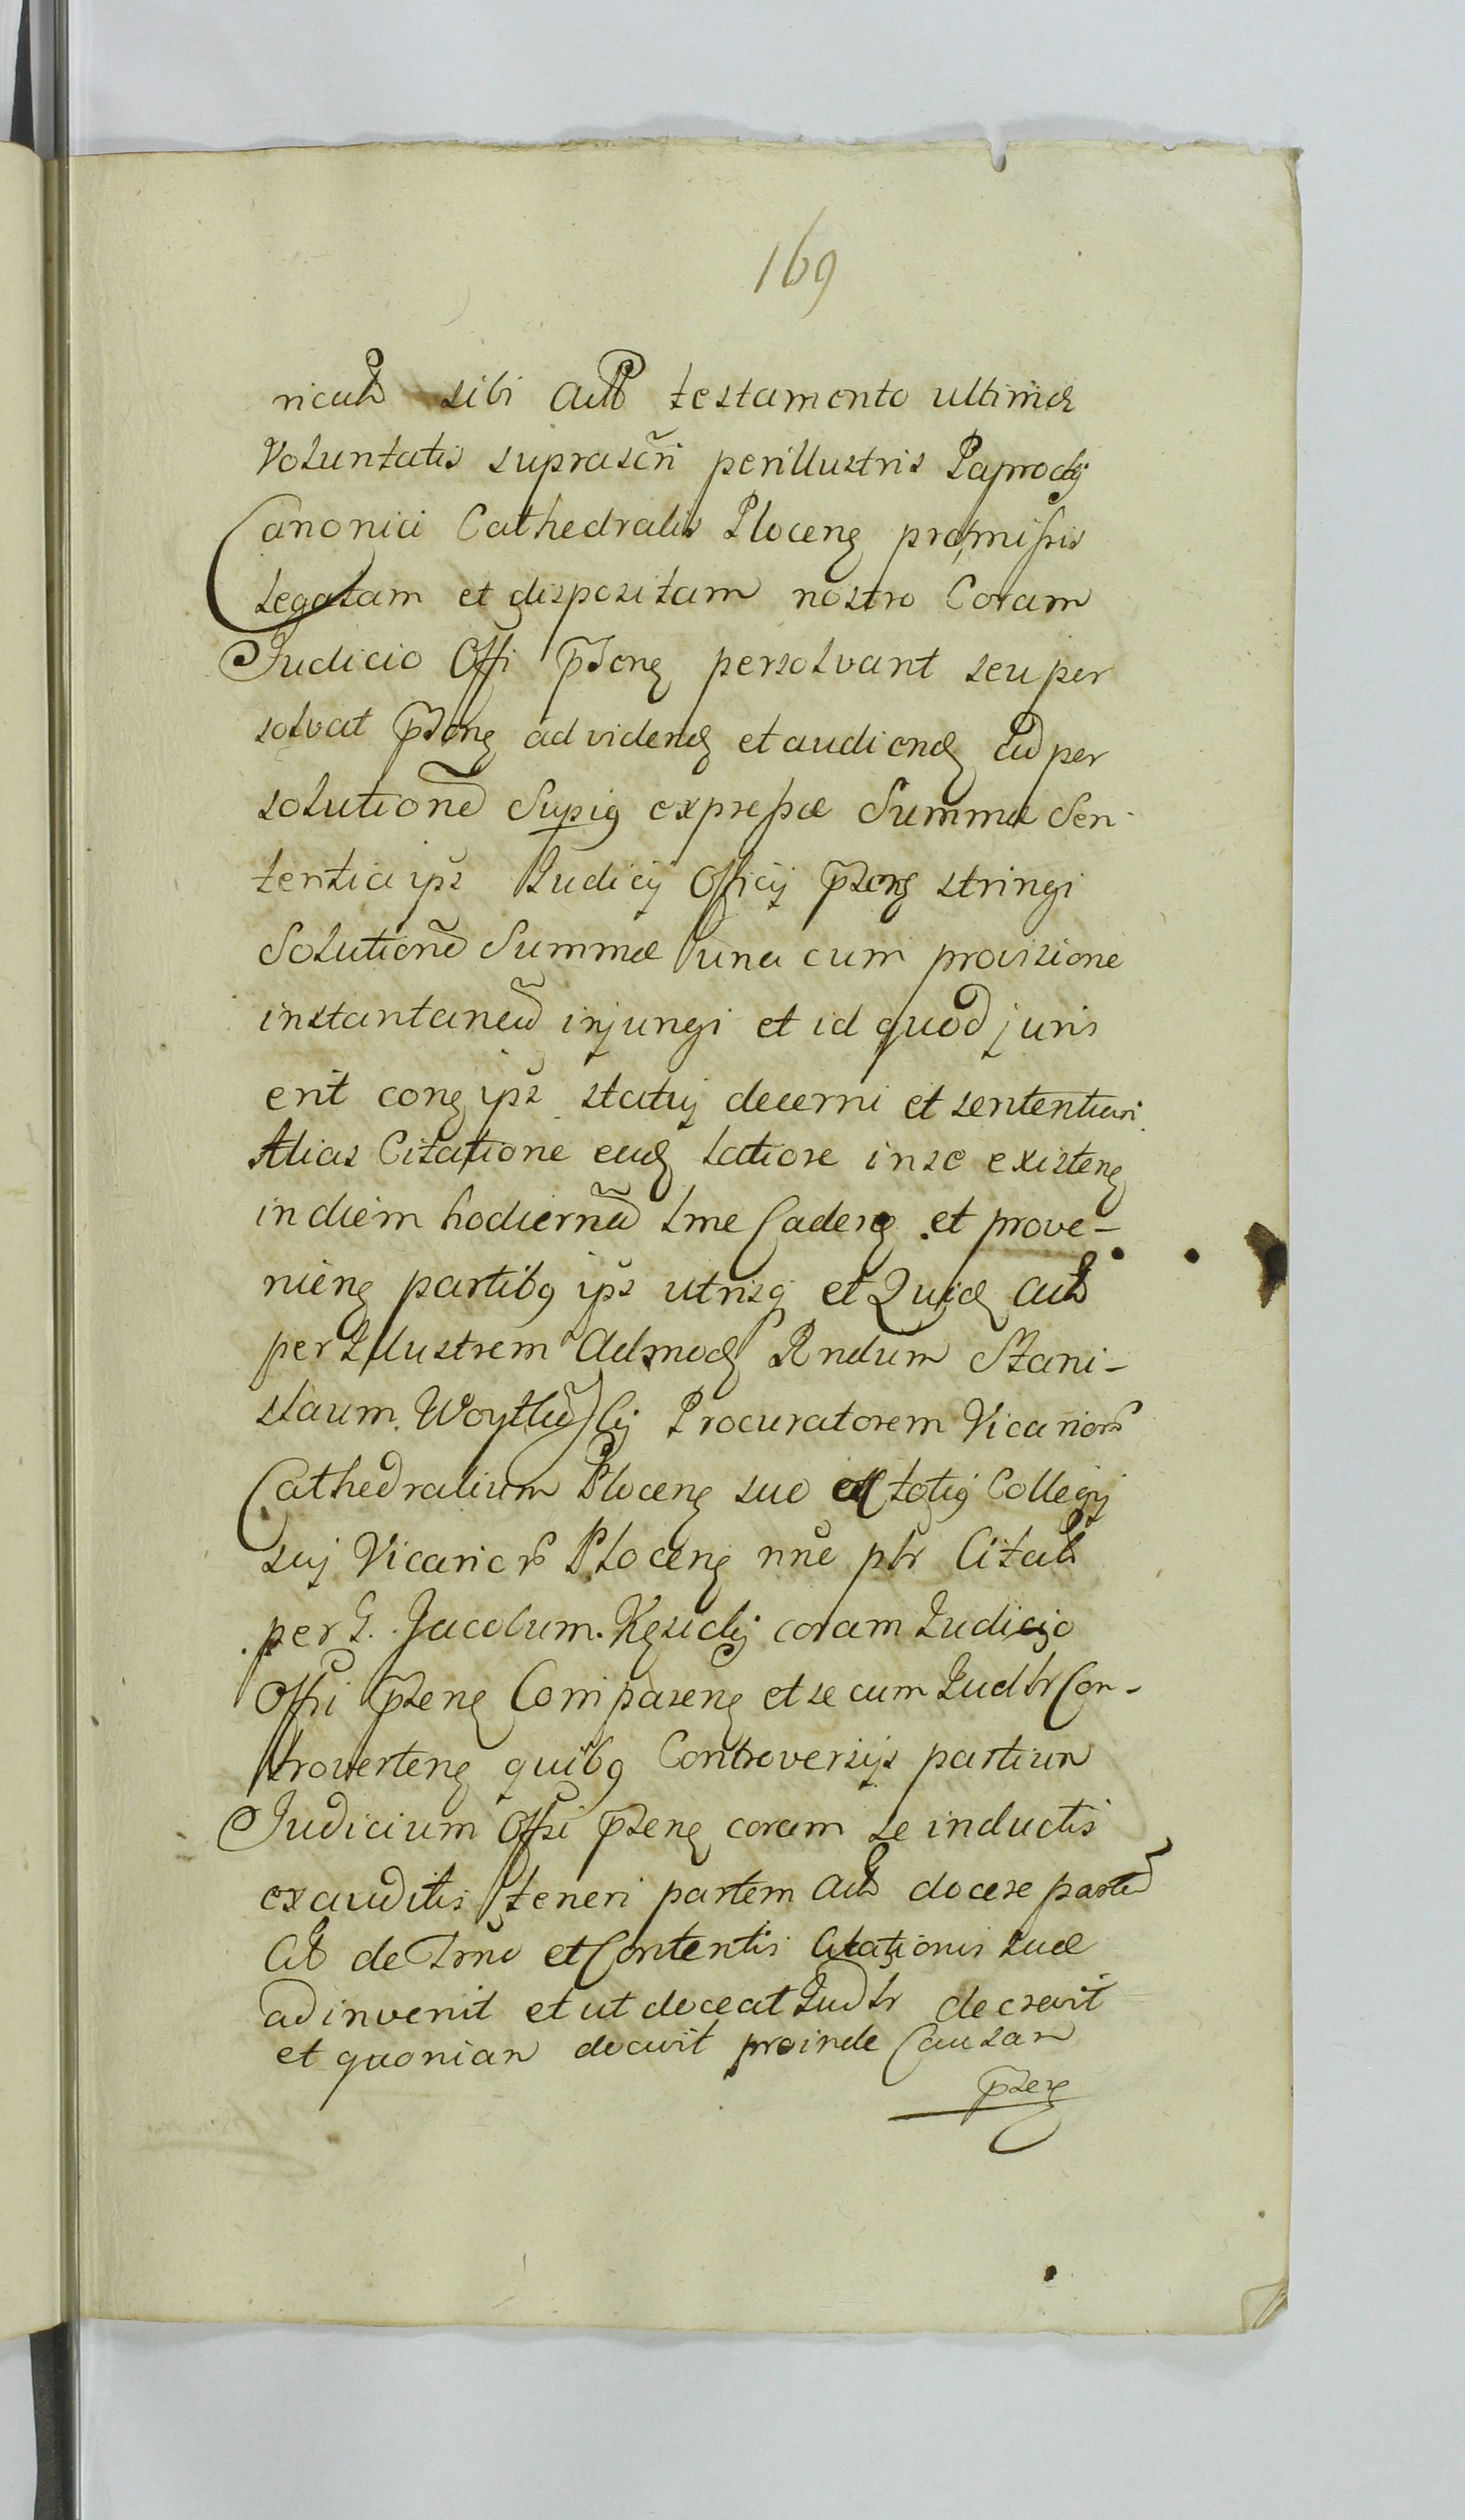 169
sibi testamento ultimæ
Voluntatis suprascri perillustris Paprocky
Canonici Cathedralis Plocen præmissis
legatam et dispositam nostro Coram
Judicio Offi pnten persolvant seu per
solvat pnten ad viden et audien ad per
solutione Supius expressæ Summæ Sen
tentia ips Judicij Officij pnten stringi
Solutione Summæ una cum provisione
instantanea injungi et id quod juris
erit con ips statuj decerni et sententiari
Alias Citatione ead latiore in se existen
in diem hodierna tme Caden et prove-
nien partibus ips utrisq et Quid
per Illustrem Admod Rndum Stani-
slaum Procuratorem Vicarior
Cathedralium Plocen suo et totius Collegij
suj Vicarior Plocen nne ptr Citat
per G. Jacobum coram Judicijo
Offi pnten Comparen et se cum Judtr Con-
troverten quibus Controversijs partium
Judicium Offi pnten coram se inductis
exauditis teneri partem docere parte
de Tmno et Contentis Citationis suæ
adinvenit et ut doceat Judtr decrevit
et quoniam docuit proinde Causam
pnten